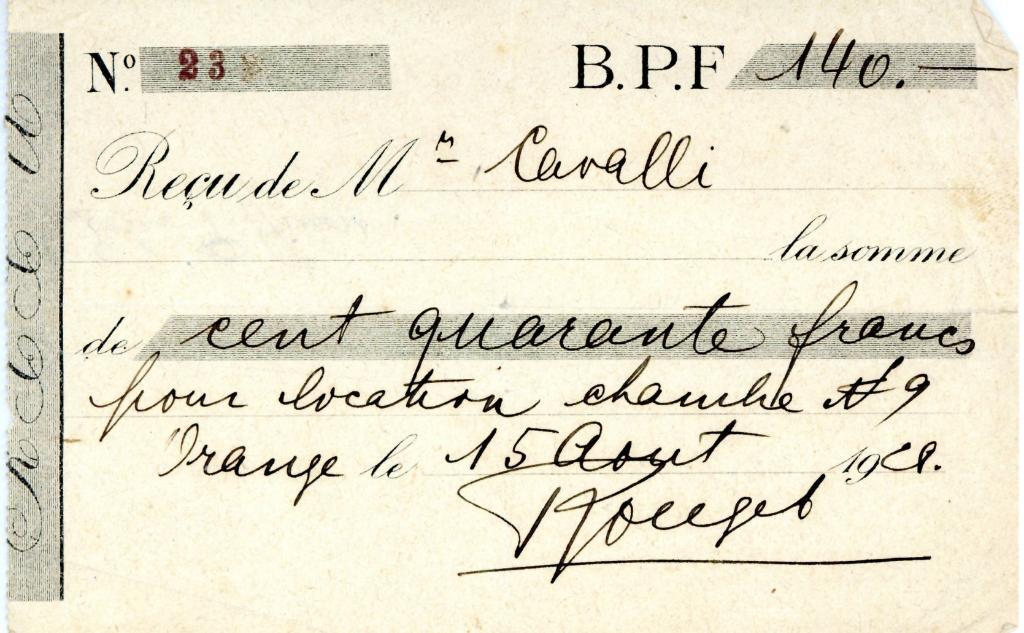 Nº 23 B.P.F 140.—
Reçu de Mʳ Cavalli
la somme
de cent quarante francs
pour location chambre N 9
Orange le 15 Aout 19